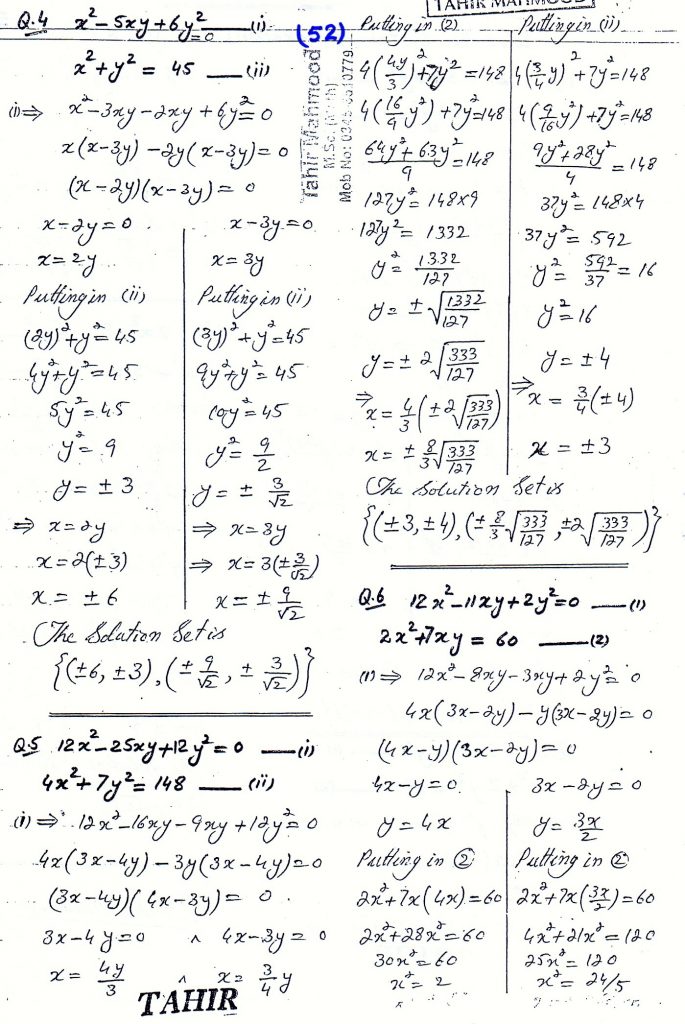 TAHIR MAHMOOD
(52)
Tahir Mahmood
M.Sc. (Math)
Q.4 x²-5xy+6y²=0 —(i)
x²+y² = 45 —(ii)
(i)⇒ x²-3xy-2xy+6y²=0
x(x-3y)-2y(x-3y)=0
(x-2y)(x-3y)=0
x-2y=0
x=2y
Putting in (ii)
(2y)²+y²=45
4y²+y²=45
5y²=45
y²=9
y=±3
⇒ x=2y
x=2(±3)
x=±6
x-3y=0
x=3y
Putting in (ii)
(3y)²+y²=45
9y²+y²=45
10y²=45
y²=9/2
y=±3/√2
⇒ x=3y
⇒ x=3(±3/√2)
x=±9/√2
The Solution Set is
{(±6, ±3), (±9/√2, ±3/√2)}
Q.5 12x²-25xy+12y²=0 —(i)
4x²+7y²=148 —(ii)
(i)⇒ 12x²-16xy-9xy+12y²=0
4x(3x-4y)-3y(3x-4y)=0
(3x-4y)(4x-3y)=0
3x-4y=0 ∧ 4x-3y=0
x=4y/3 ∧ x=3/4 y
TAHIR
Putting in (2)
4(4y/3)²+7y²=148
4(16/9 y²)+7y²=148
64y²+63y²/9=148
127y²=148×9
127y²=1332
y²=1332/127
y=±√1332/127
y=±2√333/127
⇒ x=4/3(±2√333/127)
x=±8/3√333/127
Putting in (ii)
4(3/4 y)²+7y²=148
4(9/16 y²)+7y²=148
9y²+28y²/4=148
37y²=148×4
37y²=592
y²=592/37=16
y²=16
y=±4
⇒ x=3/4(±4)
x=±3
The Solution Set is
{(±3,±4),(±8/3√333/127,±2√333/127)}
Q.6 12x²-11xy+2y²=0 —(1)
2x²+7xy=60 —(2)
(1)⇒ 12x²-8xy-3xy+2y²=0
4x(3x-2y)-y(3x-2y)=0
(4x-y)(3x-2y)=0
4x-y=0
y=4x
Putting in ②
2x²+7x(4x)=60
2x²+28x²=60
30x²=60
x²=2
3x-2y=0
y=3x/2
Putting in ②
2x²+7x(3x/2)=60
4x²+21x²=120
25x²=120
x²=24/5